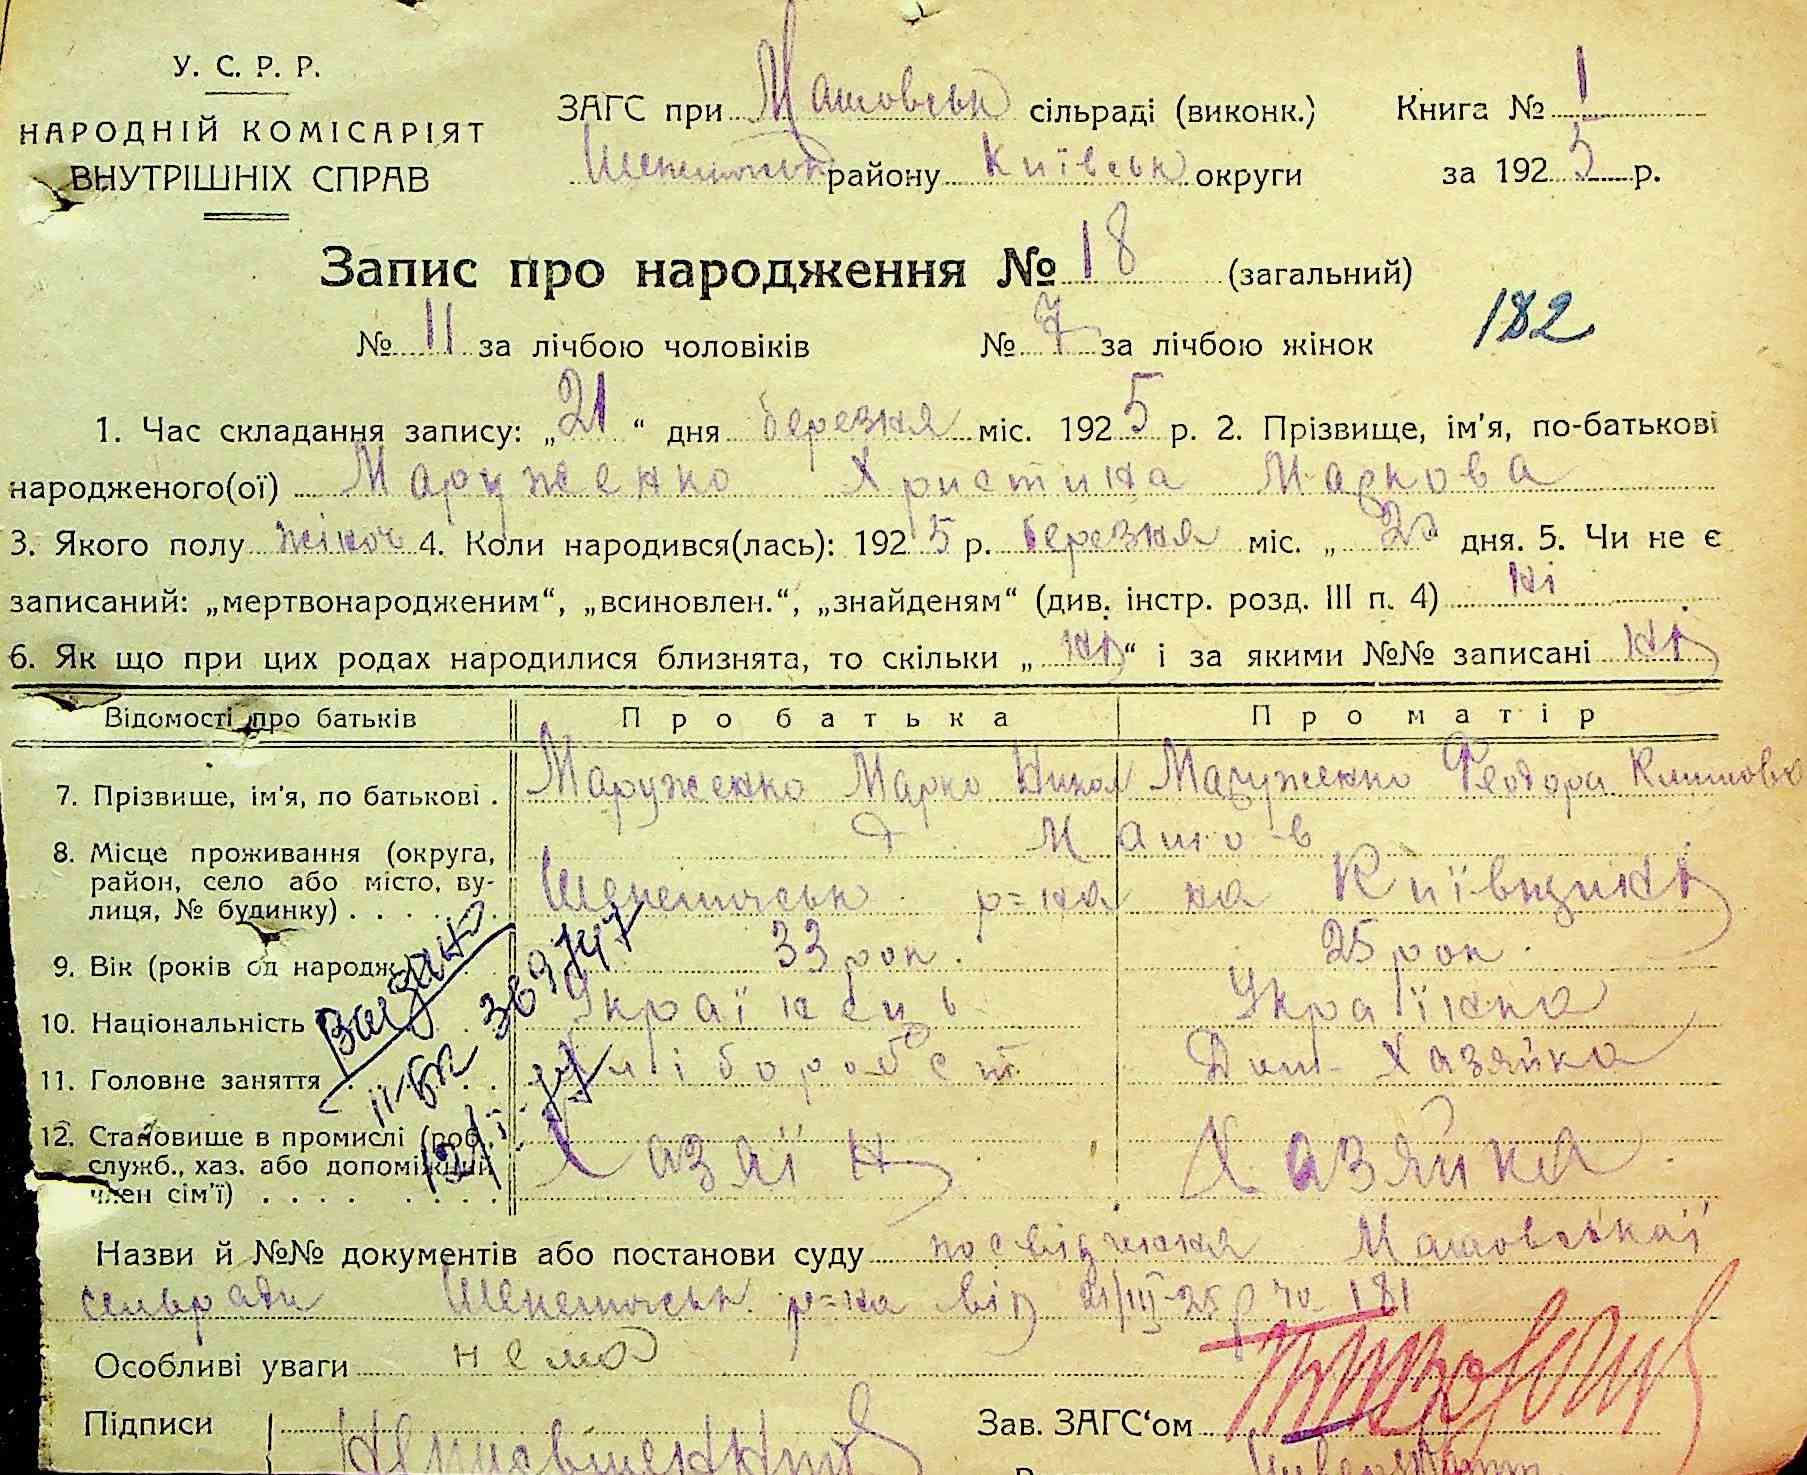 У. С. Р. Р.
НАРОДНІЙ КОМІСАРІЯТ
ВНУТРІШНІХ СПРАВ
ЗАГС при Машовськ сільраді (виконк.) Книга № 1
району Київськ округи за 1925 р.
Запис про народження № 18 (загальний)
№ 11 за лічбою чоловіків № 7 за лічбою жінок
182
1. Час складання запису: „21“ дня березня міс. 1925 р. 2. Прізвище, ім'я, по-батькові
народженого(ої) Маруженко Христина Маркова
3. Якого полу жіноч 4. Коли народився(лась): 1925 р. березня міс. „ дня. 5. Чи не є
записаний: „мертвонародженим“, „всиновлен.“, „знайденям“ (див. інстр. розд. III п. 4) ні
6. Як що при цих родах народилися близнята, то скільки „ні“ і за якими №№ записані ні
Відомості про батьків Про батька Про матір
7. Прізвище, ім'я, по батькові . Маруженко Марко Никол Маруженко Феодора
8. Місце проживання (округа, Машо-в
район, село або місто, ву-
лиця, № будинку) . . . . . . р=на на Київщині
9. Вік (років од народж. 33 рок. 25 рок.
10. Національність Українець Українка
11. Головне заняття Хліборобст Дом. Хазяйка
12. Становище в промислі (роб.,
служб., хаз. або допоміжний
член сім'ї) . . . . . . . . Хазаїн Хазяйка
Видано
Назви й №№ документів або постанови суду посвідчення Машовської
сільради р=на від 21/III-25 р 181
Особливі уваги нема
Підписи Зав. ЗАГС‘ом